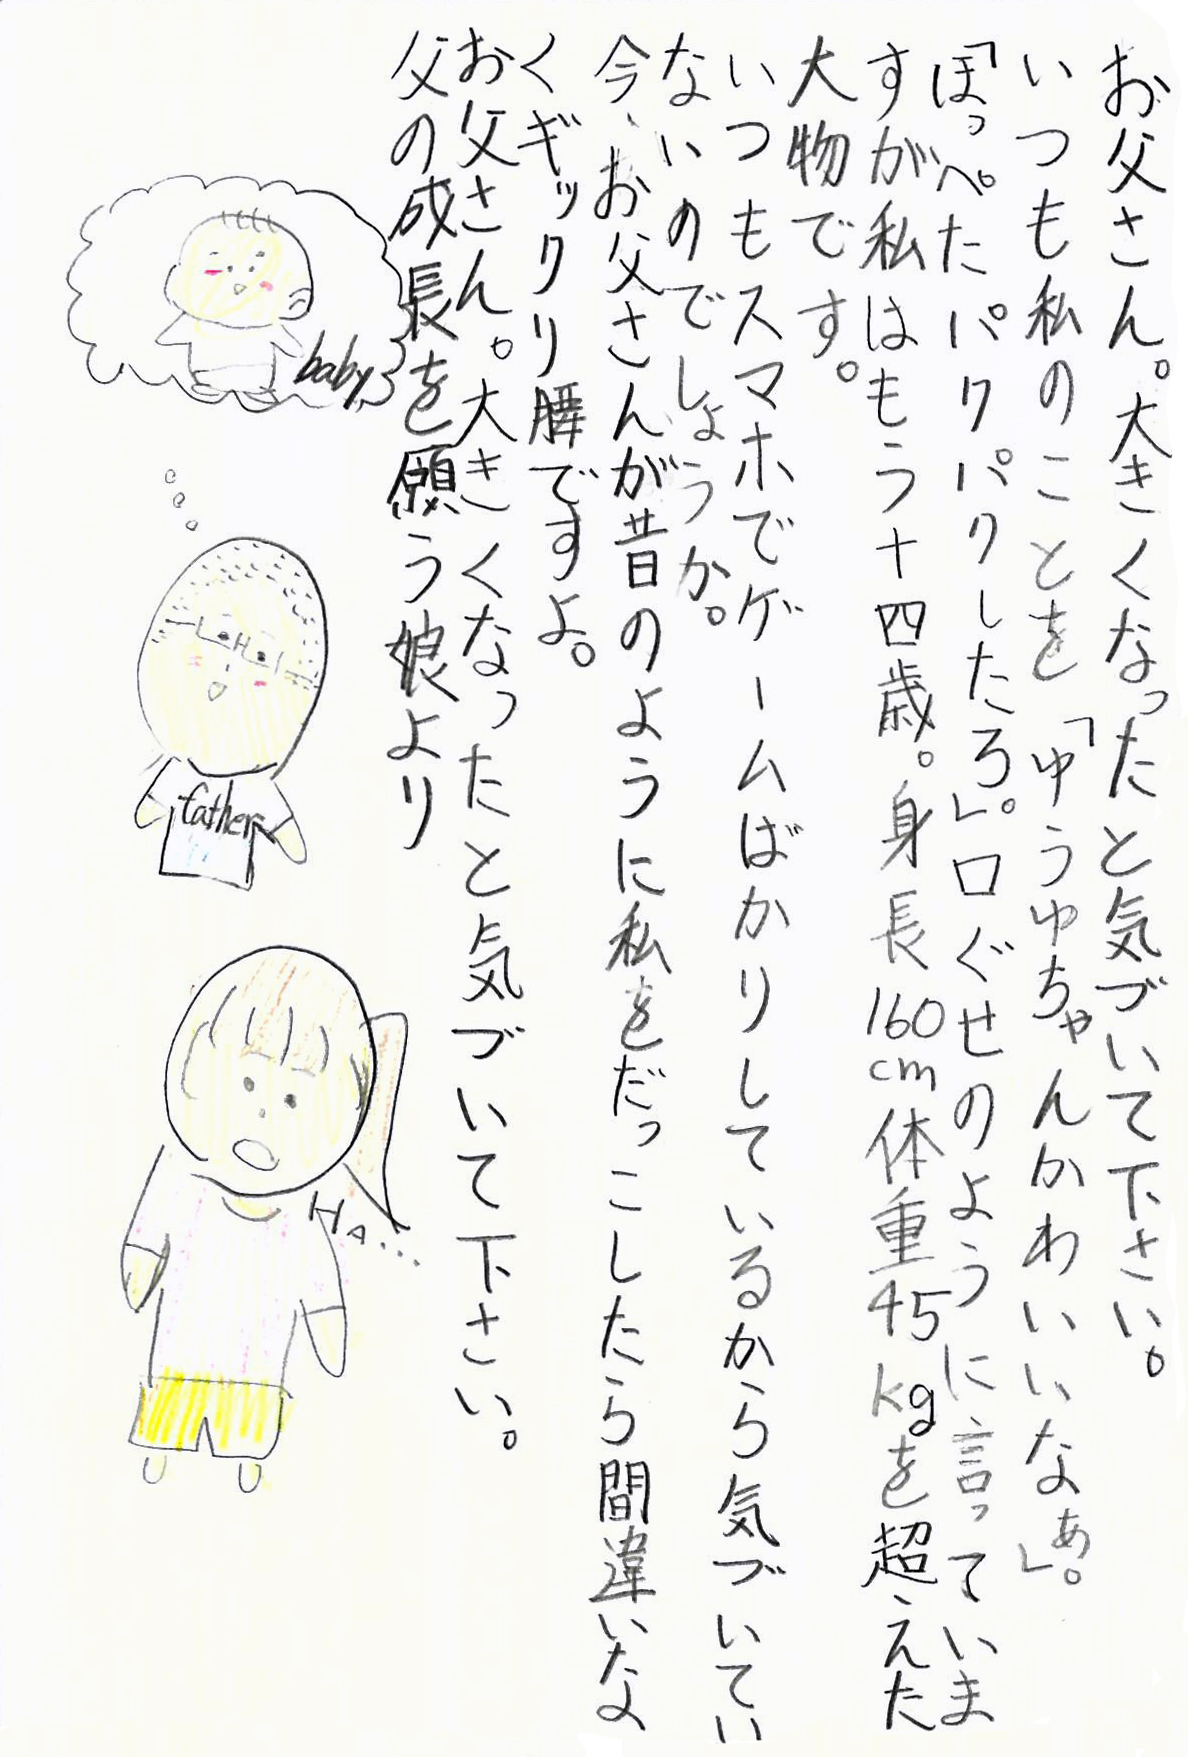 お父さん。大きくなったと気づいて下さい。
いつも私のことを「ゆうゆちゃんかわいいなぁ」。
「ほっぺたパクパクしたろ」。口ぐせのように言っていま
すが私はもう十四歳。身長160cm体重45kgを超えた
大物です。
いつもスマホでゲームばかりしているから気づいてい
ないのでしょうか。
今、お父さんが昔のように私をだっこしたら間違いな
くギックリ腰ですよ。
お父さん。大きくなったと気づいて下さい。
父の成長を願う娘より
baby
father
Ha...